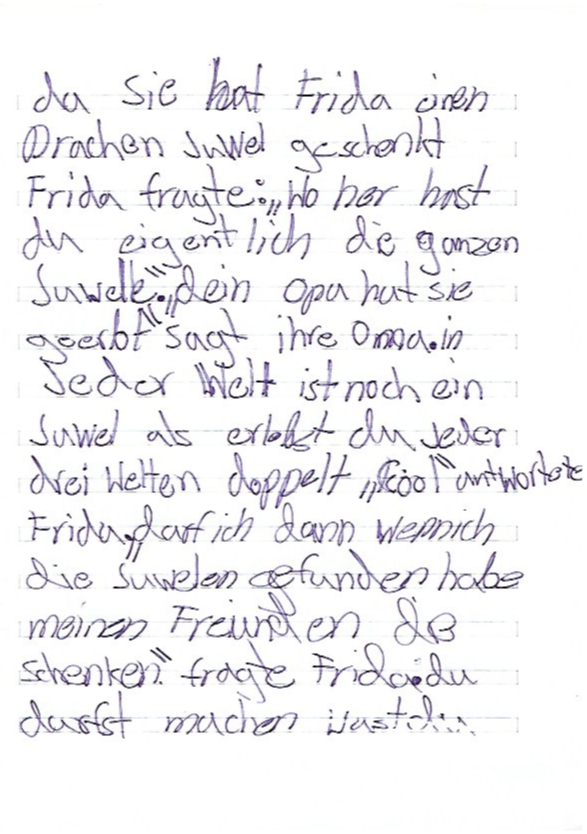 da sie hat Frida einen
Drachen Juwel geschenkt
Frida fragte: „Wo her hast
du eigentlich die ganzen
Juwelle". „dein opa hat sie
geerbt" sagt ihre Oma. in
Jeder Welt ist noch ein
Juwel als erlebst du Jeder
drei Welten doppelt „Cool" antwortete
Frida „darf ich dann wennich
die Juwelen gefunden habe
meinen Freunden die
schenken." fragte Frida. du
darfst machen